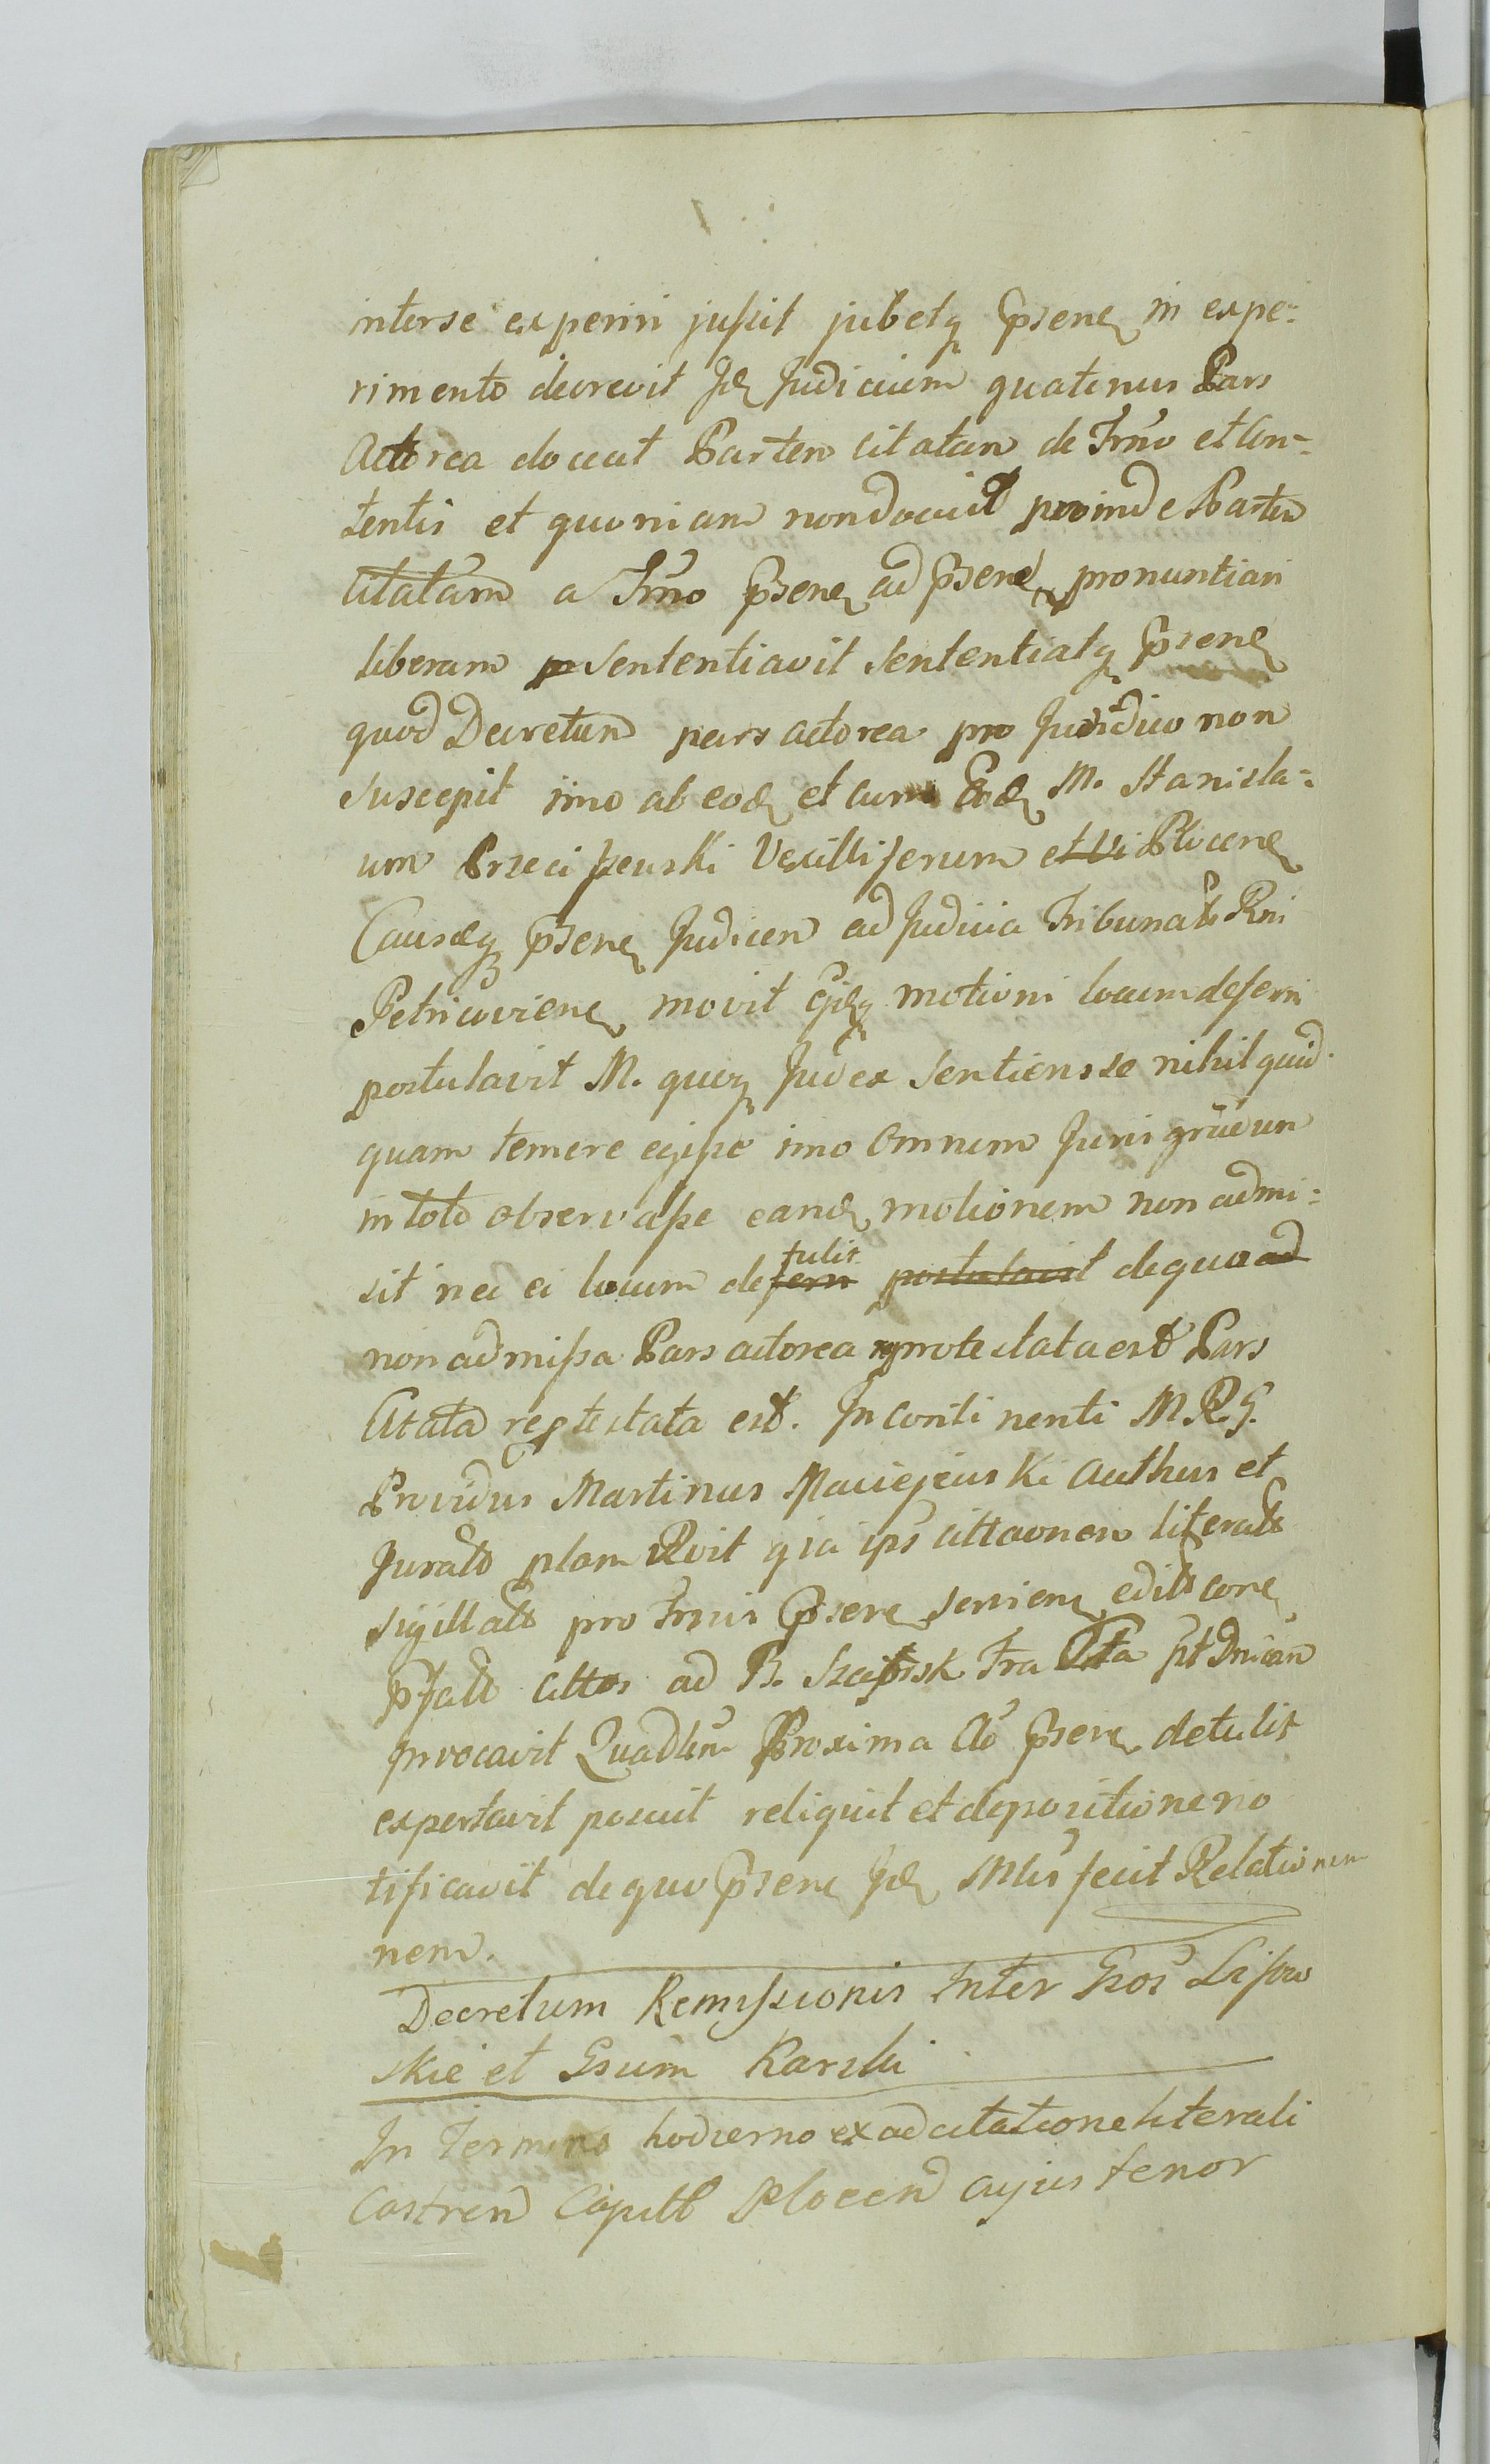 interse experiri jussit jubetq psenq in expe-
rimento decrevit Jdq Judicium quatenus Pars
Actorea doceat Partem citatam de Trno et Con-
tentis et quoniam nondocuit proinde Partem
Citatam a Trno psenq ad psenq pronuntiari
liberam Sententiavit Sententiatq psenq
quod Decretum pars actorea pro Juridico non
Suscepit imo ab eodq et cum Eodq M. Stanisla-
um Przeciszewski Vexilliferum et Vi Plocenq
Causæq psenq Judicem ad Judicia Tribunalis Rni
Petricovienq movit motioni locum deferri
postulavit M. quoq Judex Sentiens se nihil quid-
quam temere egisse imo Omnem Juris
in toto observasse eandq motionem non admi-
sit nec ei locum defern tulit postulavit dequo ad
non admissa Pars actorea protestata est Pars
Citata reptestata est. In continenti M.R.G.
Providus Martinus Maciejewski Authus et
Juratus plam Rvit qia ips cittaonem literalb
sigillatb pro Trnis psenq servienq edit core
pfatb cittos ad B. Tra pt Dnicam
Invocavit Quadlm Proxima Ao psenq detulit
exportavit posuit reliquit et depozitione no
tificavit dequo psenq Jdq Mlis fecit Relationem
nem.
Decretum Remissionis Inter Gsos Lisow
skie et Gsum Karski
In Termino hodierno ex adcitatione literali
Castren Capitl Plocen cujus tenor